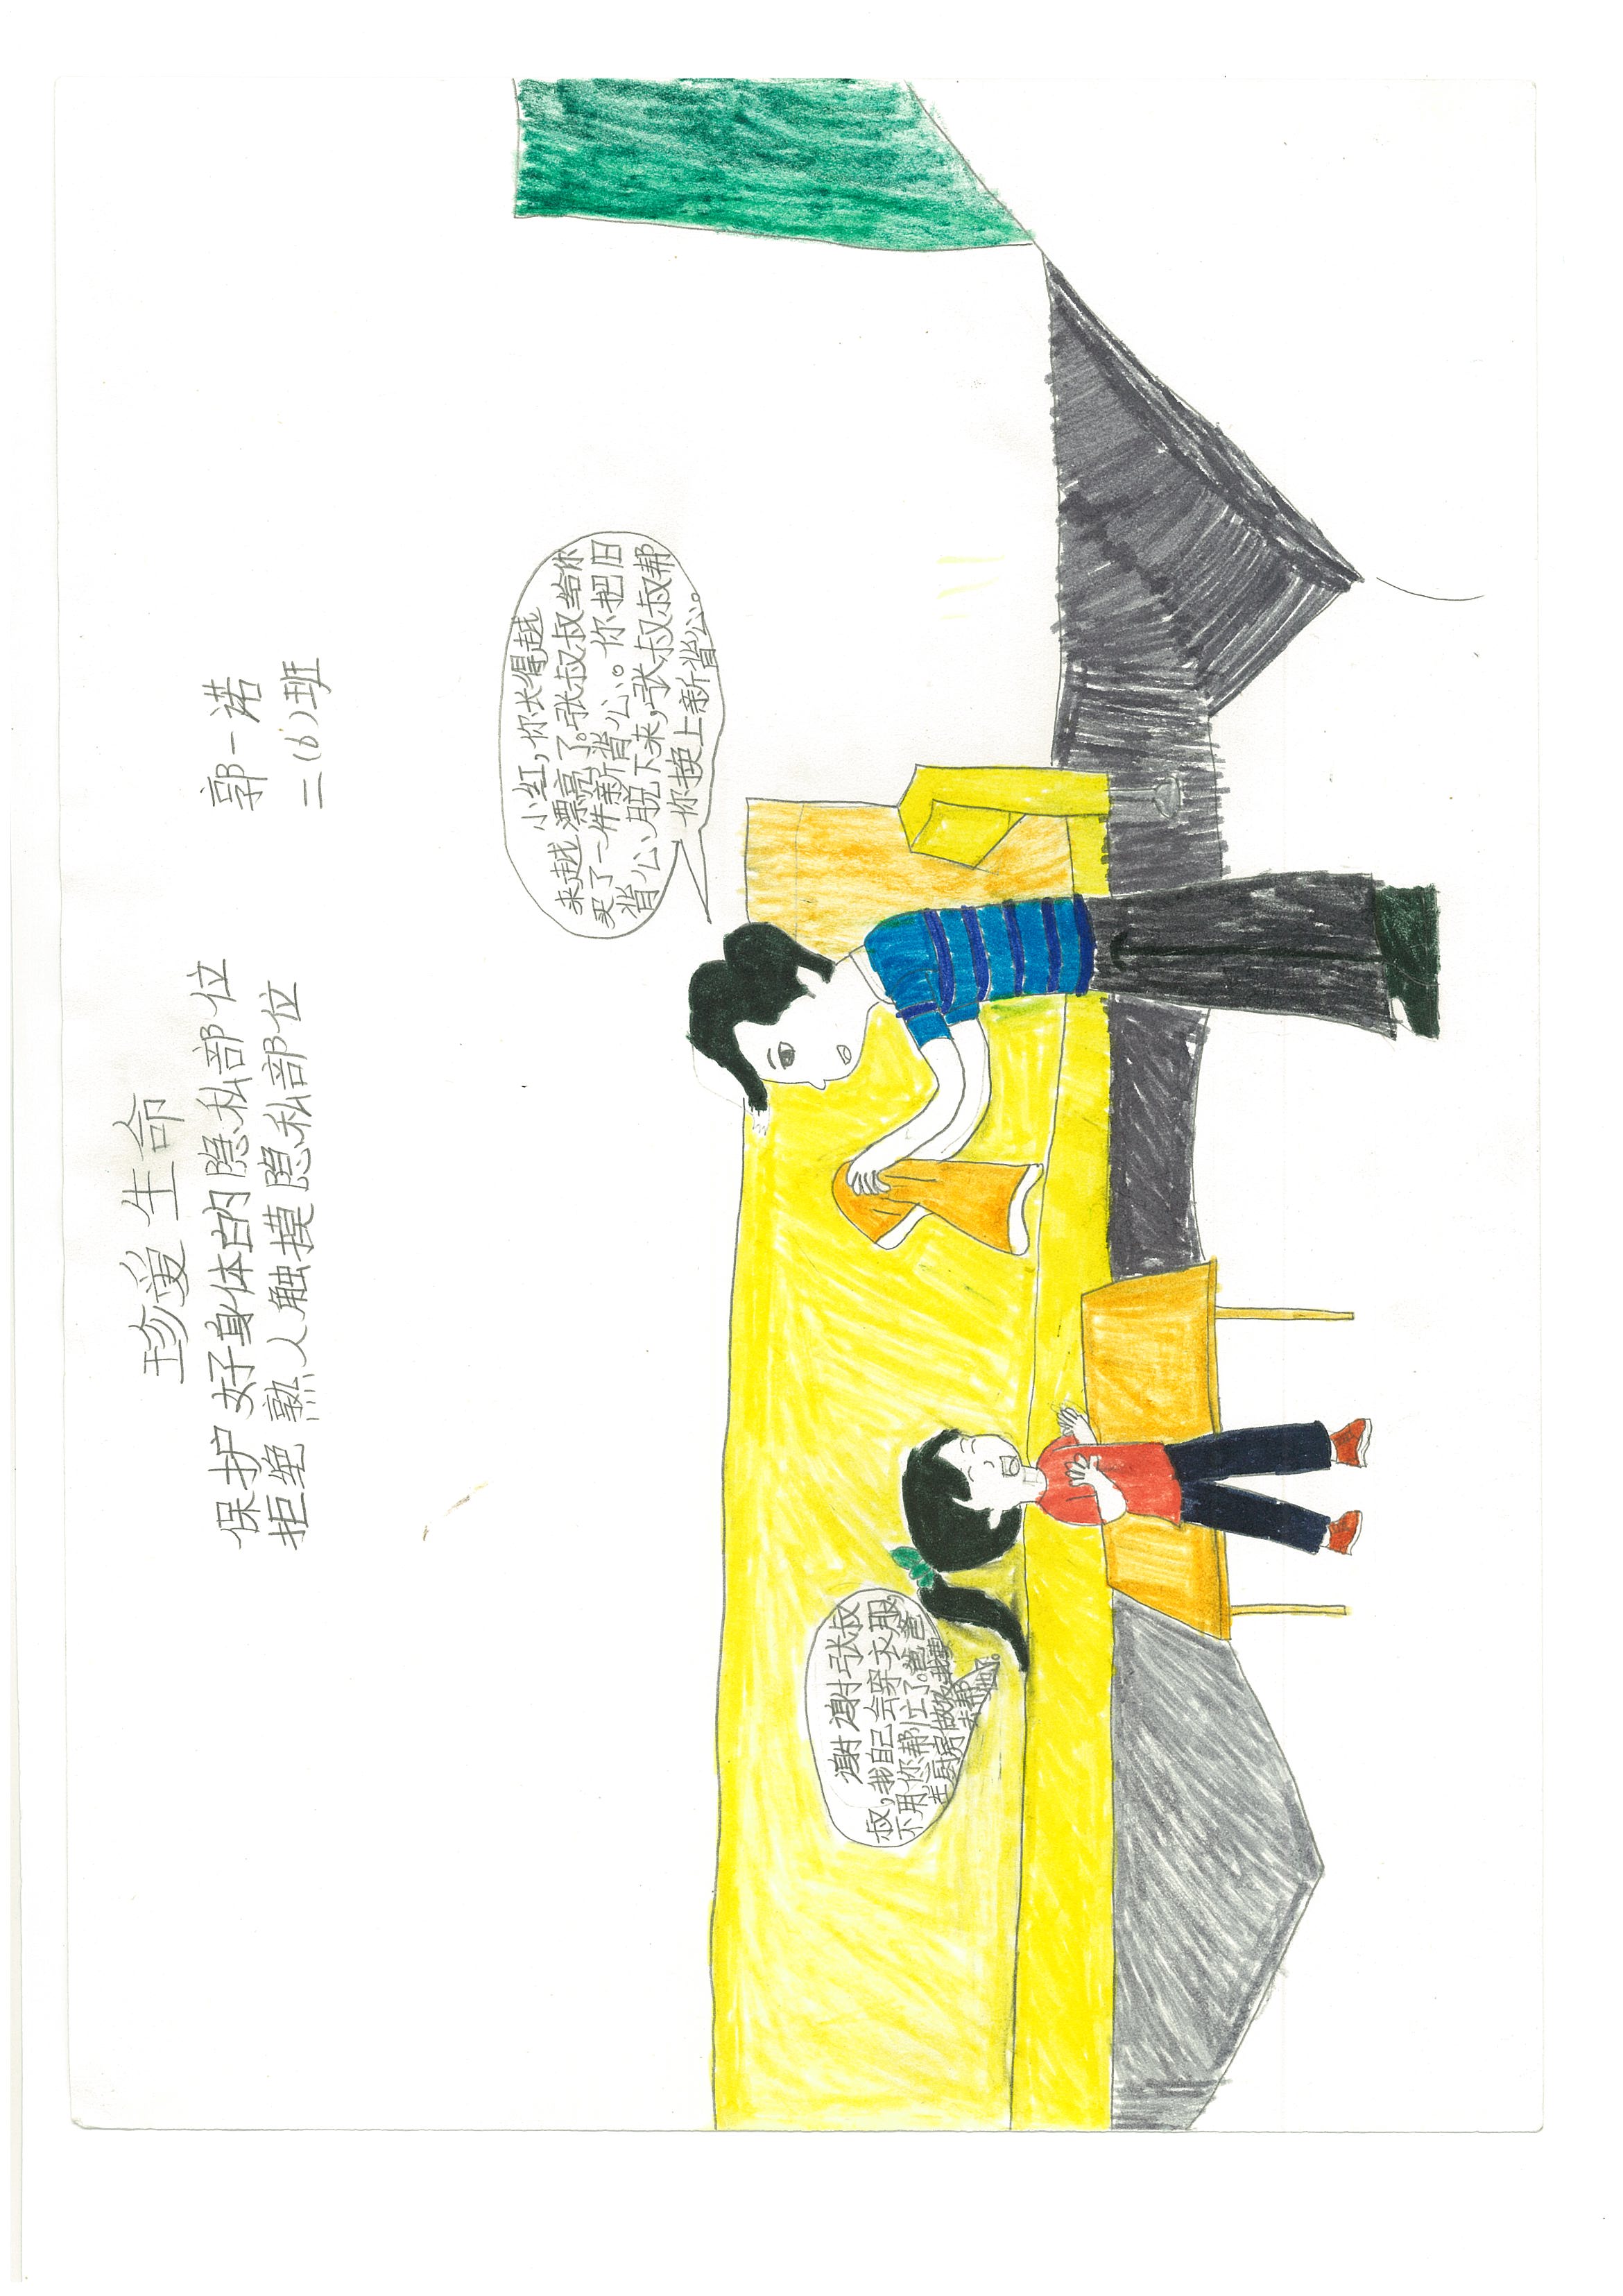 珍爱生命
保护好身体的隐私部位
拒绝熟人触摸隐私部位
郭一诺
二(6)班
小红,你长得越
来越漂亮了。张叔叔给你
买了一件新背心。你把旧
背心脱下来,张叔叔帮
你换上新背心。
谢谢张叔
叔,我自己会穿衣服,
不用你帮忙了。爸爸
在厨房做饭我要
去帮他。